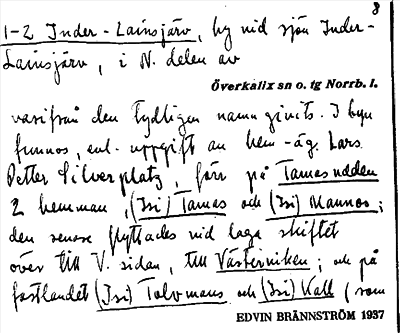 8
1-2 Inder-Lainsjärv, by vid sjön Inder-
Lainsjärv, i N. delen av
Överkalix sn o. tg Norrb. l.
varifrån den tydligen namn givits. I byn
funnos, enl. uppgift av hem.-äg. Lars
Petter Silverplatz, förr på Tamasudden
2 hemman, (Isi) Tamas och (Isi) Mannos;
den senare flyttades vid laga skiftet
över till V. sidan, till Västerviken; och på
fastlandet (Isi) Tolvmans och (Isi) Kall (som
EDVIN BRÄNNSTRÖM 1937